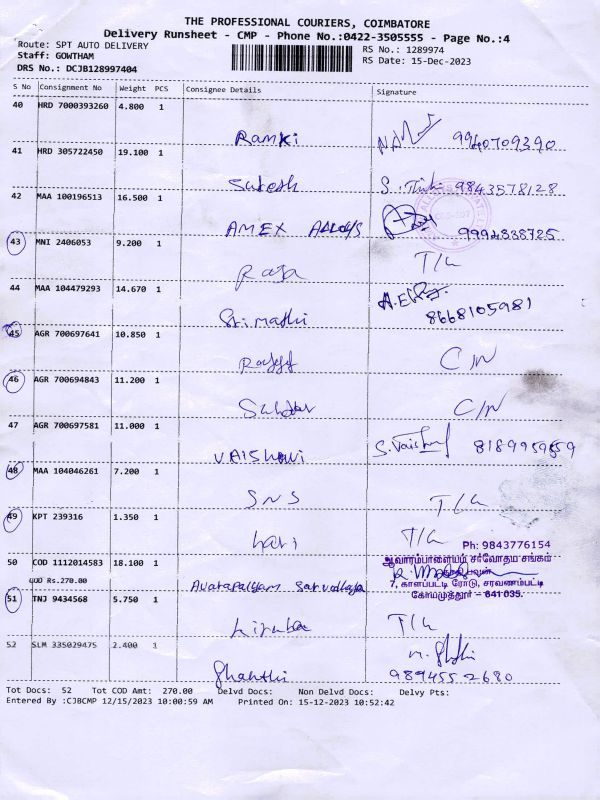 THE PROFESSIONAL COURIERS, COIMBATORE
Delivery Runsheet - CMP - Phone No.:0422-3505555 - Page No.:4
Route: SPT AUTO DELIVERY RS No.: 1289974
Staff: GOWTHAM RS Date: 15-Dec-2023
DRS No.: DCJB128997404
S No Consignment No Weight PCS Consignee Details Signature
40 HRD 7000393260 4.800 1
Ramki 9940709390
41 HRD 305722450 19.100 1
Suresh 9843578128
42 MAA 100196513 16.500 1
AMEX Alloys 9994838725
43 MNI 2406053 9.200 1
Raja T/C
44 MAA 104479293 14.670 1
Srimathi 8668105981
45 AGR 700697641 10.850 1
C/N
46 AGR 700694843 11.200 1
C/N
47 AGR 700697581 11.000 1
VAISHNAVI S. Vaish 8189959859
48 MAA 104046261 7.200 1
SNS T/C
49 KPT 239316 1.350 1
hari T/C
Ph: 9843776154
50 COD 1112014583 18.100 1
ஆவாரம்பாளையம் சர்வோதய சங்கம்
Rs.270.00
Avarapalyam Sarvothaya
7, காளப்பட்டி ரோடு, சரவணம்பட்டி
கோயமுத்தூர் – 641 035.
51 TNJ 9434568 5.750 1
T/C
52 SLM 335029475 2.400 1
Shakthi
9894552680
Tot Docs: 52 Tot COD Amt: 270.00 Delvd Docs: Non Delvd Docs: Delvy Pts:
Entered By :CJBCMP 12/15/2023 10:00:59 AM Printed On: 15-12-2023 10:52:42